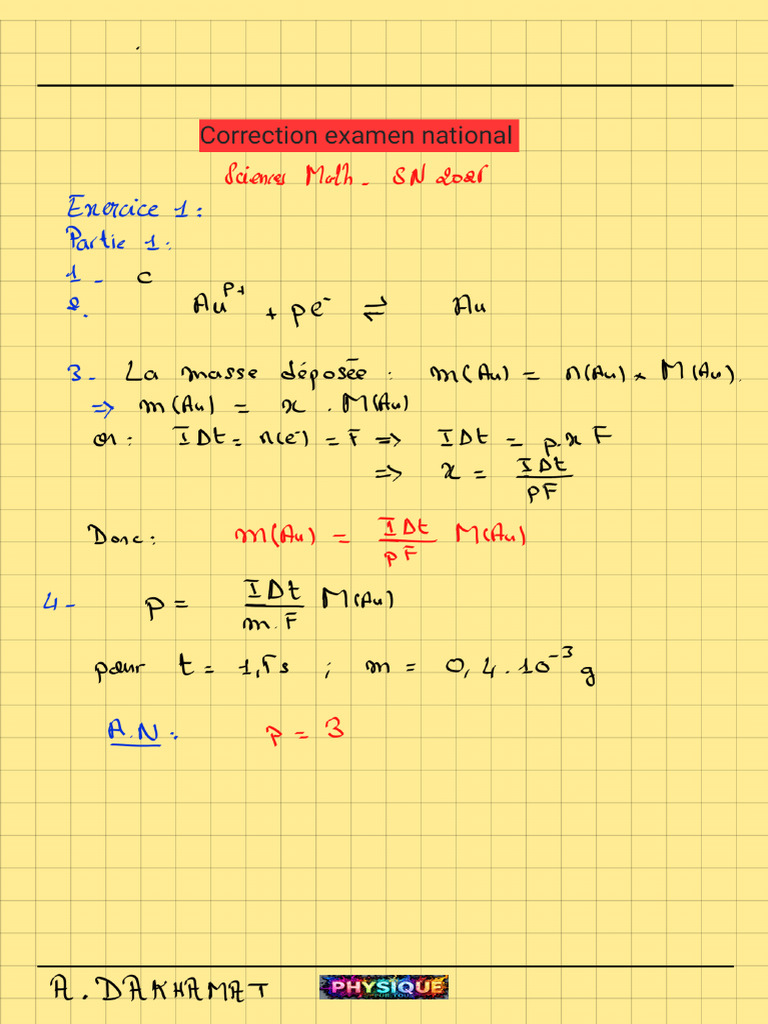 Correction examen national
Sciences Math - SN 2025
Exercice 1 :
Partie 1 :
1 - C
2. Au^{p+} + p e^- ⇌ Au
3 - La masse déposée : m(Au) = n(Au) × M(Au).
=> m(Au) = x . M(Au)
or : I Δt = n(e^-) = F => I Δt = p.x F
=> x = I Δt / pF
Donc : m(Au) = I Δt / pF M(Au)
4 - p = I Δt / m.F M(Au)
pour t = 1,5 s ; m = 0,4.10^{-3} g
A.N : p = 3
A. DAKHAMAT
PHYSIQUE